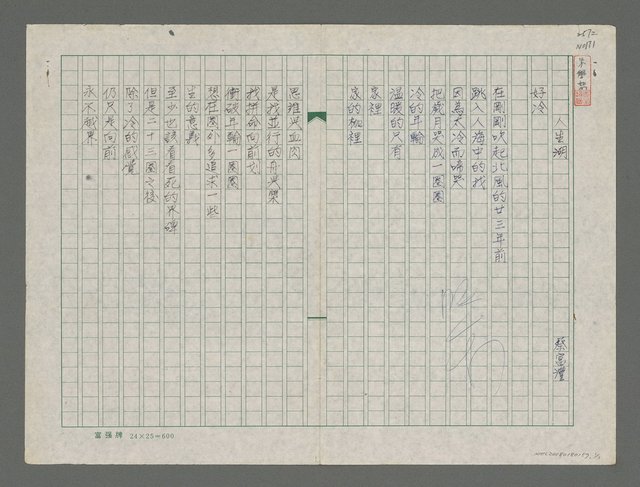 人生湖
蔡富澧
好冷
在剛剛吹起北風的廿三年前
跳入人海中的我
因為太冷而啼哭
把歲月哭成一圈圈
冷的年輪
溫暖的只有
家裡
家的
思維與血肉
是我並行的舟與槳
我拼命向前划
衝破年輪一圈圈
想在圈外多追求一些
生的意義
至少也該看看死的界碑
但是二十三圈之後
除了冷的感覺
仍只是向前
永不
富强牌 24×25=600